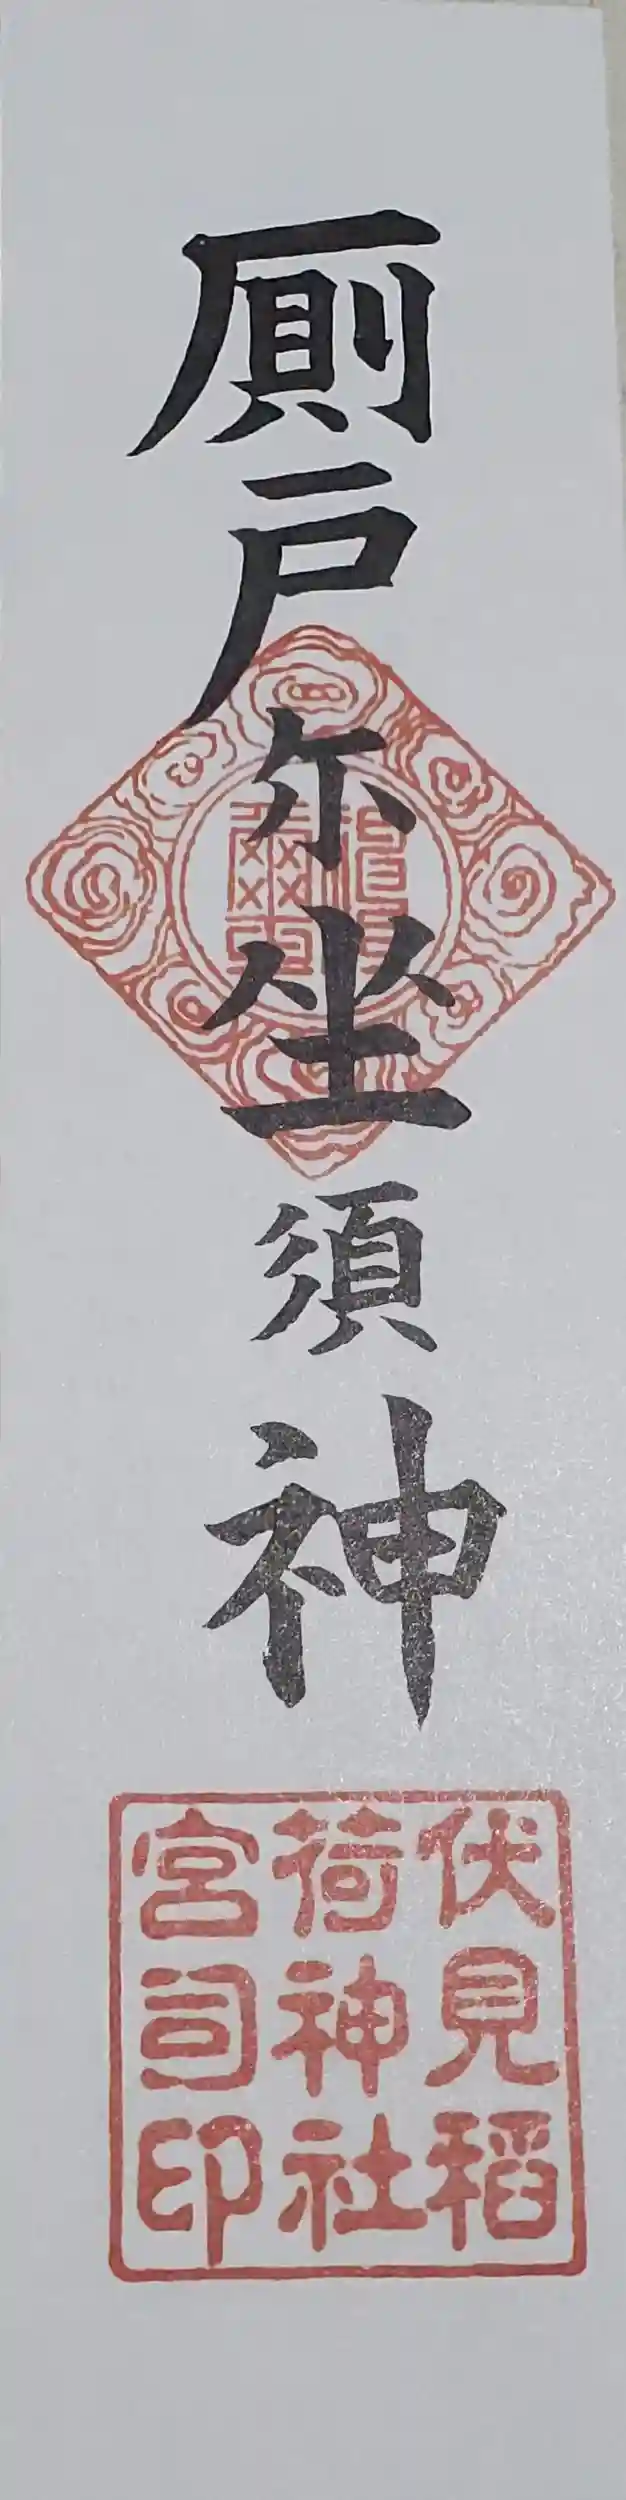 厠戸尓坐須神
伏見稲
荷神社
宮司印